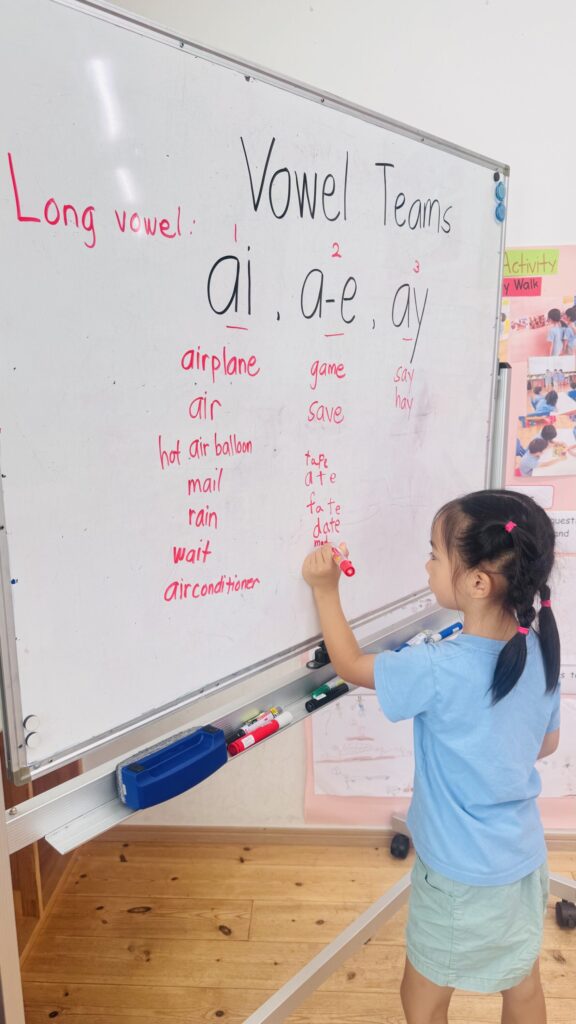 Vowel Teams
Long vowel:
1 2 3
ai, a-e, ay
airplane
air
hot air balloon
mail
rain
wait
airconditioner
game
save
tape
ate
fate
date
say
hay
Activity
y Walk